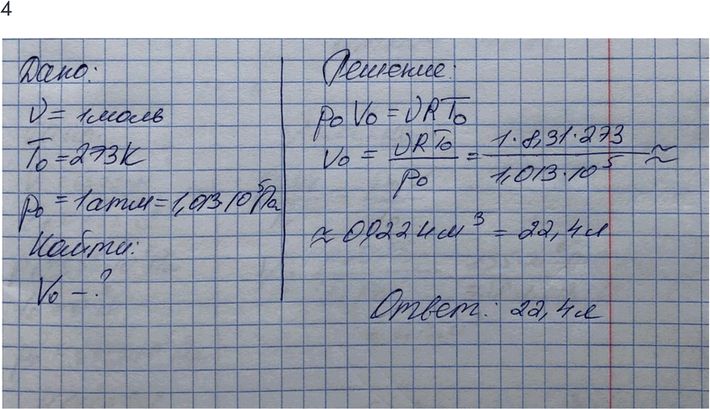 4
Дано:
ν = 1 моль
T₀ = 273 К
p₀ = 1 атм = 1,013·10⁵ Па
Найти:
V₀ - ?
Решение:
p₀ V₀ = νRT₀
V₀ = νRT₀ / p₀ = 1·8,31·273 / 1,013·10⁵ ≈
≈ 0,0224 м³ = 22,4 л
Ответ: 22,4 л